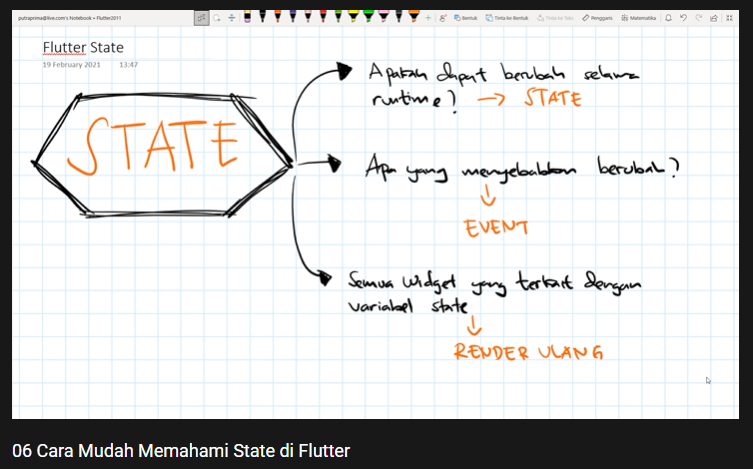 putraprima@live.com's Notebook » Flutter2011
Bentuk
Tinta ke Bentuk
Tinta ke Teks
Pengganti
Matematika
Flutter State
19 February 2021 13:47
STATE
Apakah dapat berubah selama
runtime? → STATE
Apa yang menyebabkan berubah?
↓
EVENT
Semua widget yang terkait dengan
variabel state
↓
RENDER ULANG
06 Cara Mudah Memahami State di Flutter